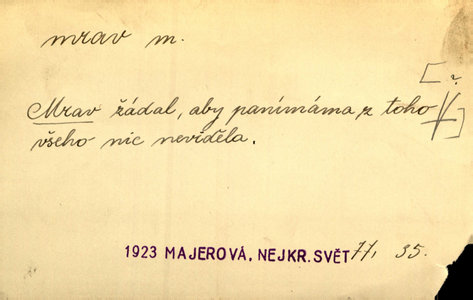 mrav m.
[ ?
Mrav žádal, aby panímáma z toho ]
všeho nic neviděla.
1923 MAJEROVÁ, NEJKR. SVĚT 77, 35.